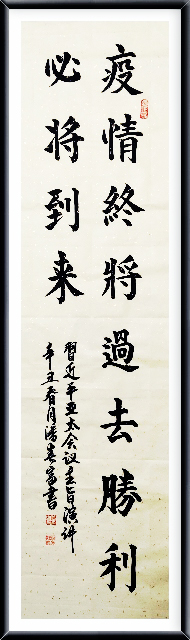 疫情終將過去勝利
必将到来
習近平亚太会议主旨演讲
辛丑春月潘春富書